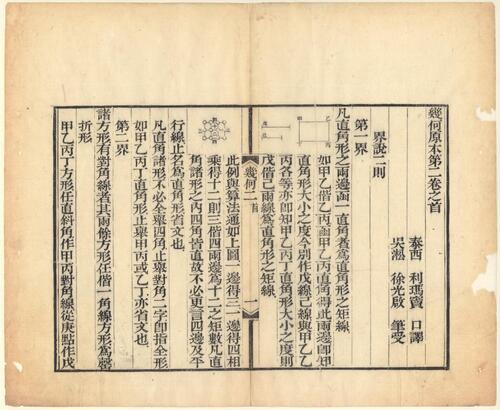 幾何原本第二卷之首
泰西 利瑪竇 口譯
吳淞 徐光啟 筆受
界說二則
第一界
凡直角形之兩邊函一直角者為直角形之矩線
如甲乙偕乙丙函甲乙丙直角得此兩邊即知
直角形大小之度今別作戊線己線與甲乙乙
丙各等亦即知甲乙丙丁直角形大小之度則
戊偕己兩線為直角形之矩線
幾何二 首 一
此例與算法通如上圖一邊得三一邊得四相
乘得十二則三偕四兩邊為十二之矩數凡直
角諸形之內四角皆直故不必更言四邊及平
行線止名為直角形省文也
凡直角諸形不必全舉四角止舉對角二字即指全形
如甲乙丙丁直角形止舉甲丙或乙丁亦省文也
第二界
諸方形有對角線者其兩餘方形任偕一角線方形為罄
折形
甲乙丙丁方形任直斜角作甲丙對角線從庚點作戊